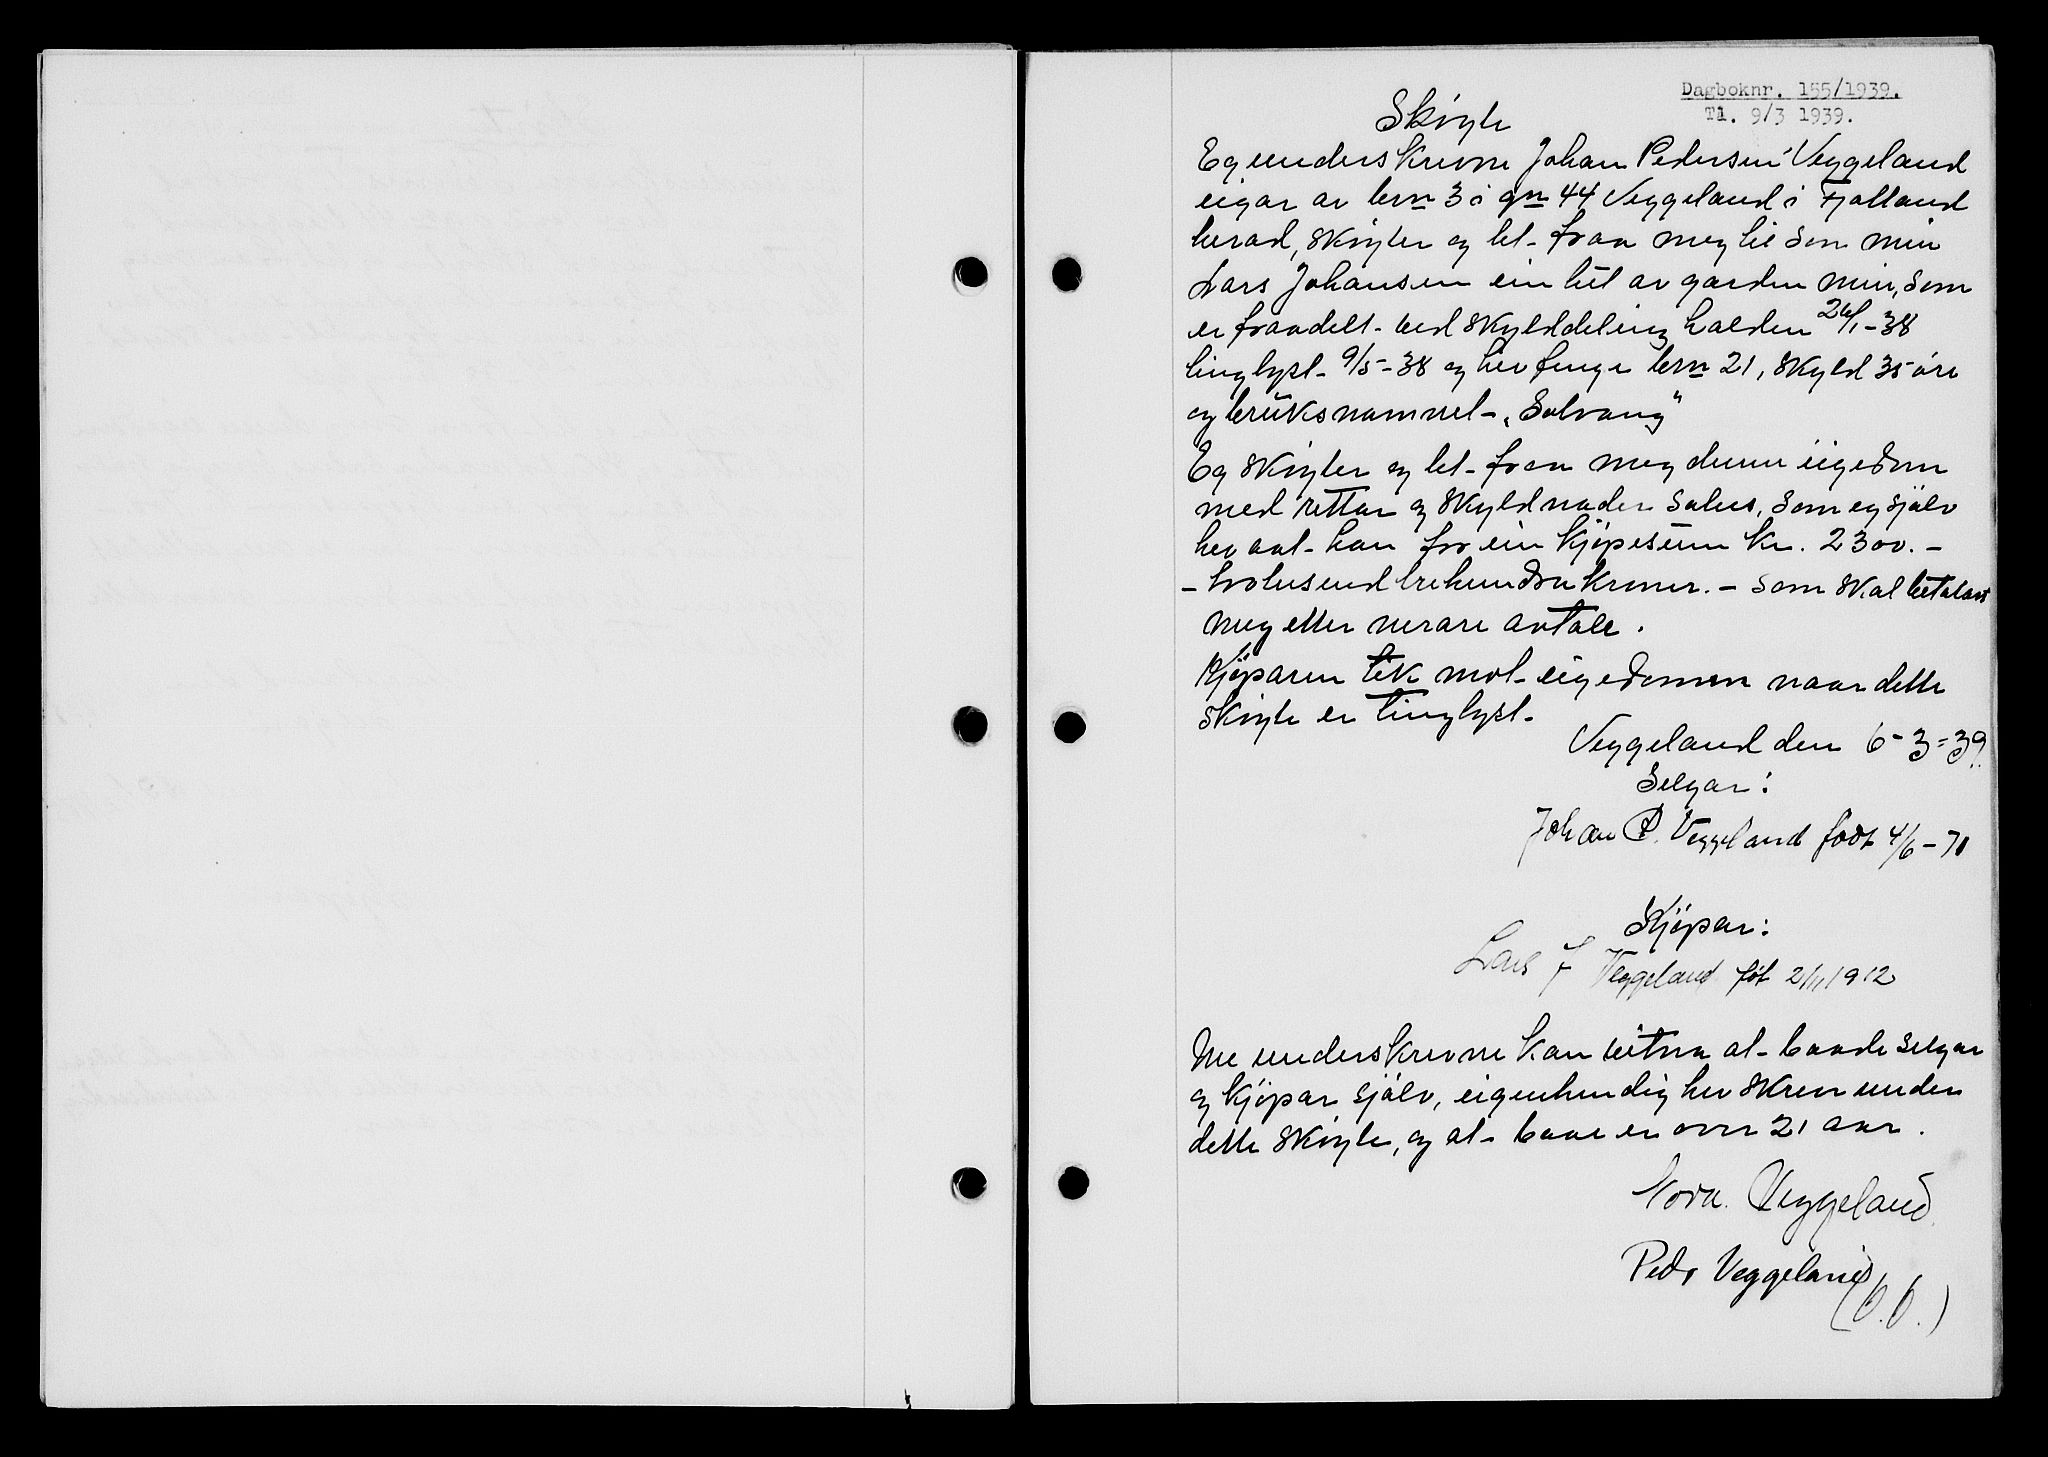 Dagboknr. 155/1939.
Tl. 9/3 1939.
Skøyte
Eg underskrivne Johan Pedersen Veggeland
eigar av brn 3 i gn 44 Veggeland i Fjotland
herad, skøyter og let fraa meg til son min
Lars Johansen ein lut av garden min, som
er fraadelt ved skylddeling halden 26/1-38
tinglyst 9/5-38 og hev fenge brn 21, skyld 35 øre
og bruksnamnet „Solvang"
Eg skøyter og let fraa meg denne eigedom
med rettar og skyldnader soleis, som eg sjølv
hev aat han for ein kjøpesum kr. 2300.-
- totusend trehundra kroner. - som skal betalast
meg etter nerare avtale.
Kjøparen tek mot eigedomen naar dette
skøyte er tinglyst.
Veggeland den 6-3-39.
Selgar:
Johan P. Veggeland født 4/6-71
Kjøpar:
Lars J Veggeland føt 2/11 1912
Me underskrivne kan vitna at baade selgar
og kjøpar sjølv, eigenhendig hev skreve under
dette skøyte, og at baae er over 21 aar.
Nora. Veggeland.
Peder Veggeland
(b.b.)